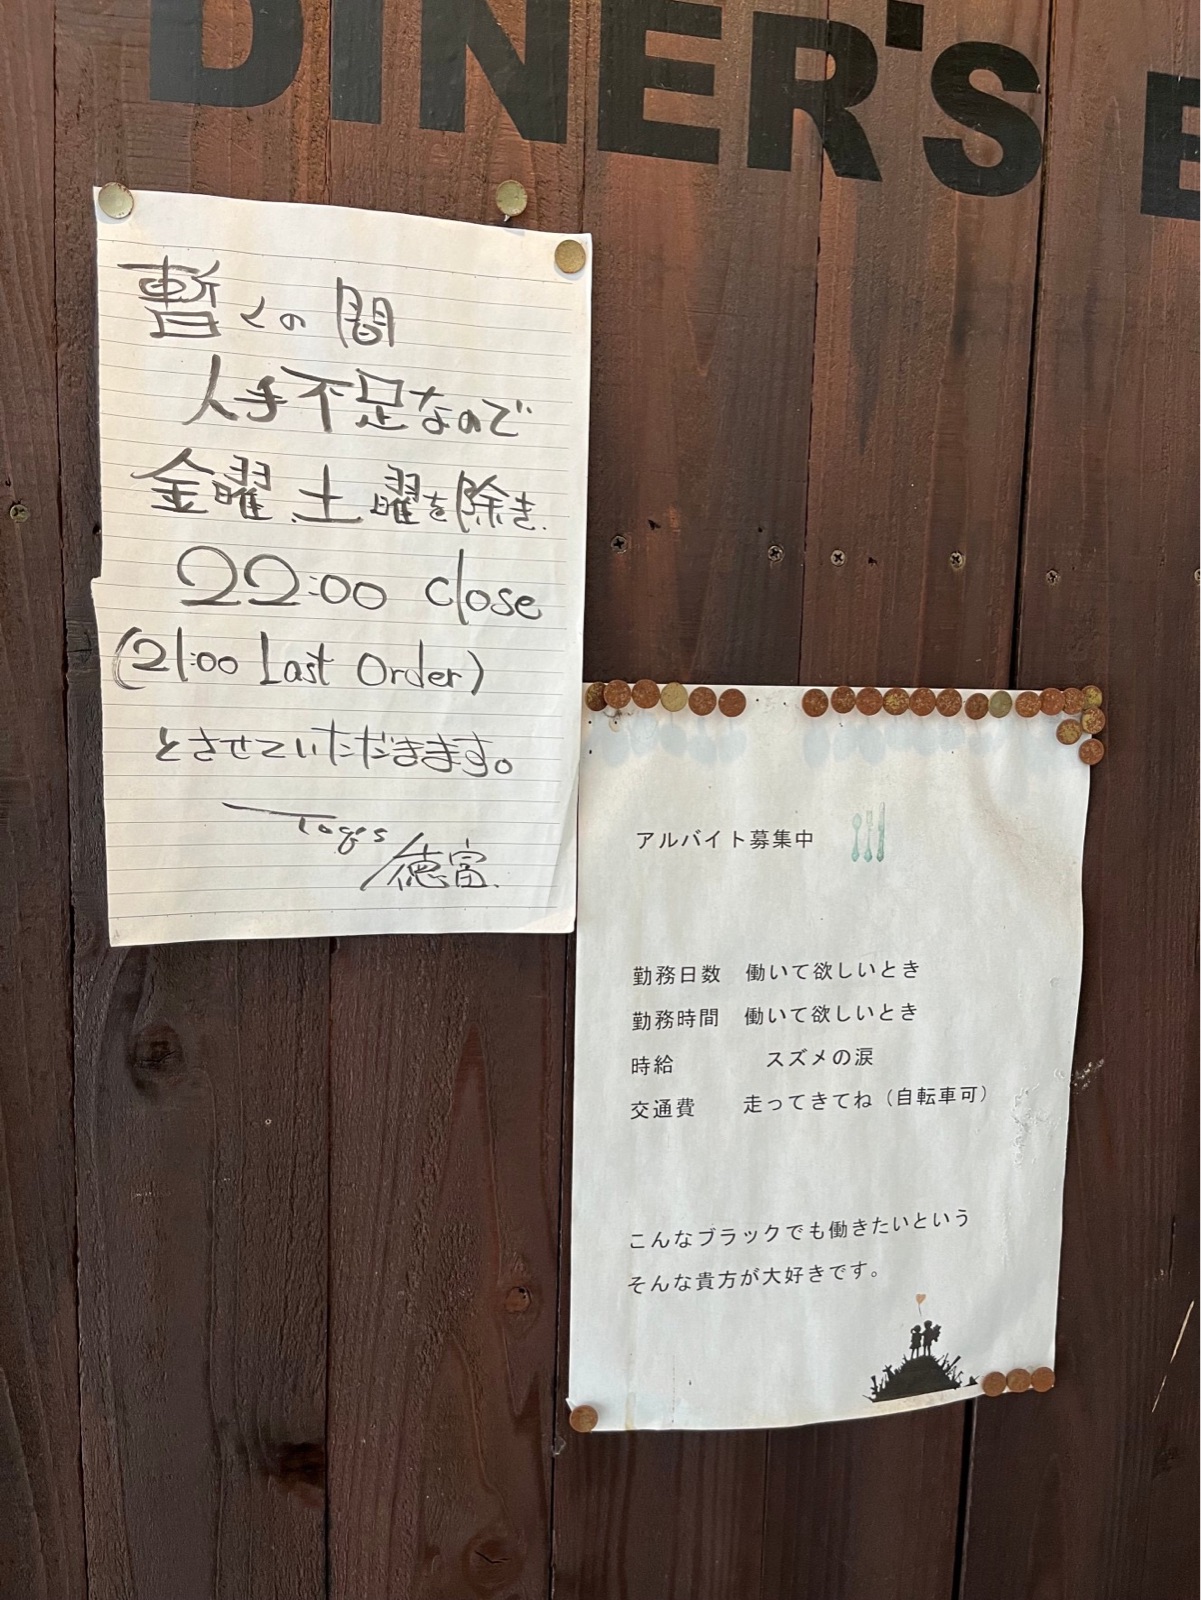 DINER'S
暫くの間
人手不足なので
金曜、土曜を除き、
22:00 close
(21:00 Last Order)
とさせていただきます。
Toge's
徳富
アルバイト募集中
勤務日数 働いて欲しいとき
勤務時間 働いて欲しいとき
時給 スズメの涙
交通費 走ってきてね（自転車可）
こんなブラックでも働きたいという
そんな貴方が大好きです。